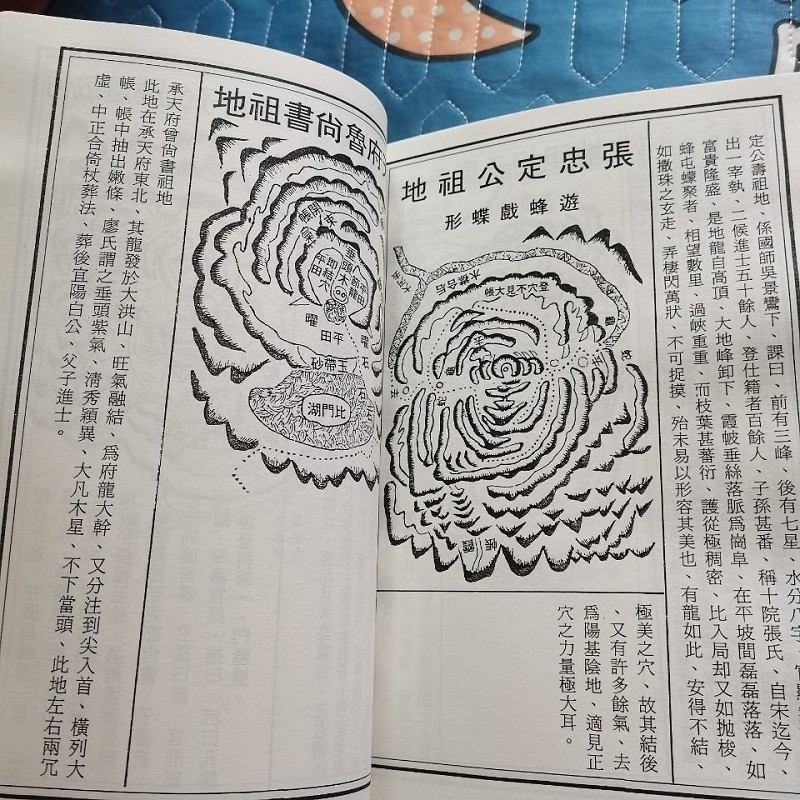 定公壽祖地、係國師吳景鸞下、課曰、前有三峰、後有七星、水分八字、官
出一宰執、二侯進士五十餘人、登仕籍者百餘人、子孫甚番、稱十院張氏、自宋迄今、
富貴隆盛、是地龍自高頂、大地峰卸下、霞帔垂絲落脈爲崗阜、在平坡間磊磊落落、如
蜂屯蠓聚者、相望數里、過峽重重、而枝葉甚蕃衍、護從極稠密、比入局却又如拋梭、
如撒珠之玄走、弄棲閃萬狀、不可捉摸、殆未易以形容其美也、有龍如此、安得不結、
張忠定公祖地
遊蜂戲蝶形
水纏身后
登穴不見大帳
帳霞
極美之穴、故其結後
、又有許多餘氣、去
爲陽基陰地、適見正
穴之力量極大耳。
府魯尙書祖地
平田
曜
曜
玉帶砂
比門湖
承天府曾尙書祖地
此地在承天府東北、其龍發於大洪山、旺氣融結、爲府龍大幹、又分注到尖入首、橫列大
帳、帳中抽出嫩條、廖氏謂之垂頭紫氣、淸秀穎異、大凡木星、不下當頭、此地左右兩冗
虛、中正合倚杖葬法、葬後宜陽白公、父子進士。